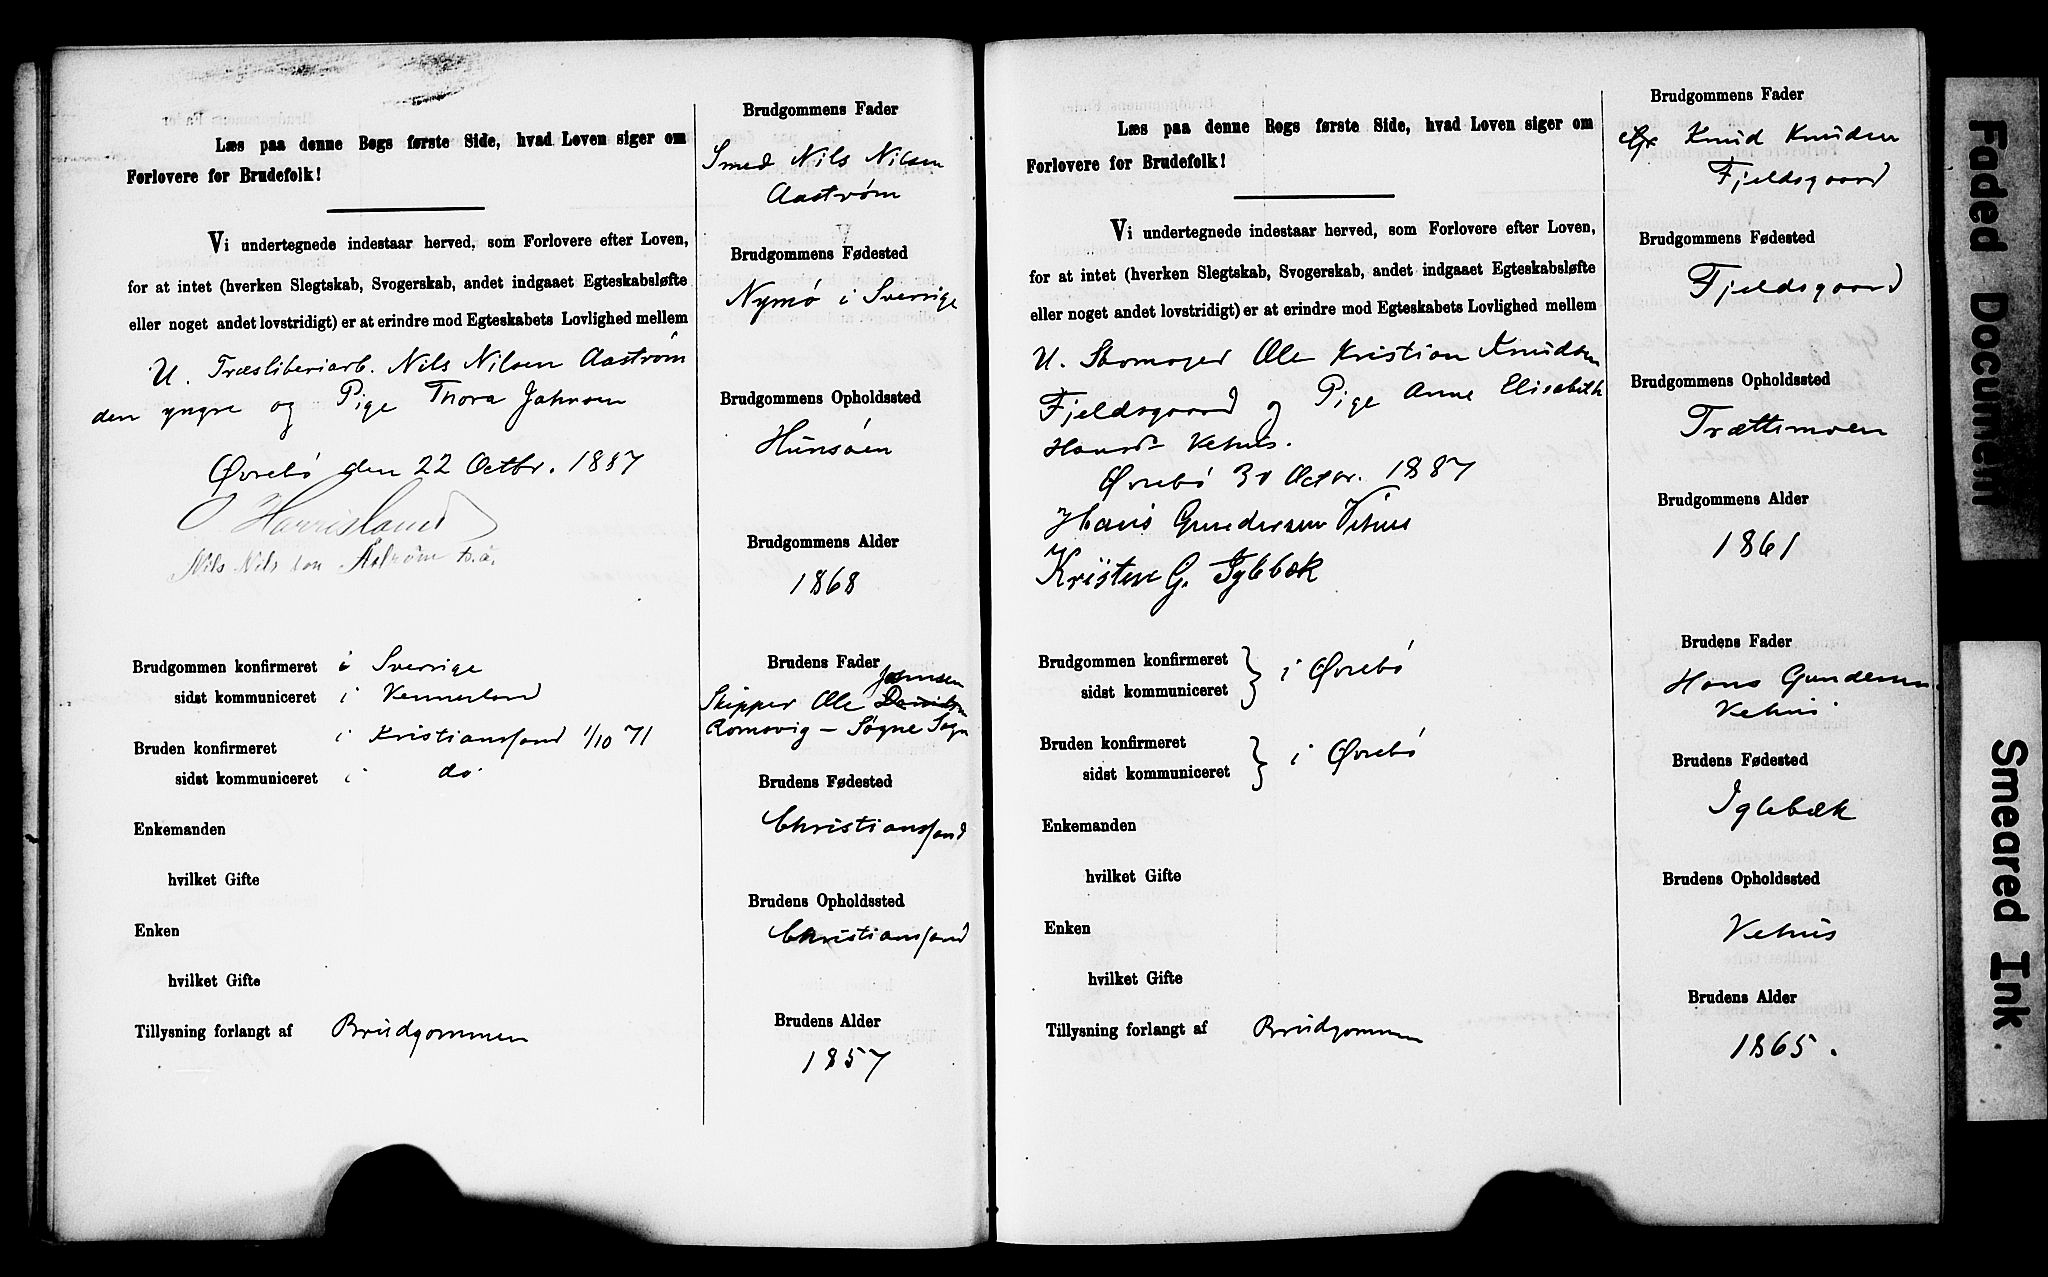 Læs paa denne Bogs første Side, hvad Loven siger om
Forlovere for Brudefolk!
Vi undertegnede indestaar herved, som Forlovere efter Loven,
for at intet (hverken Slegtskab, Svogerskab, andet indgaaet Egteskabsløfte
eller noget andet lovstridigt) er at erindre mod Egteskabets Lovlighed mellem
U. Træsliberiarb. Nils Nilsen Aastrøm
den yngre og Pige Thora Jahnsen
Øvrebø den 22 Octbr. 1887
Nils Nilsson Åstrøm d.ä.
Brudgommen konfirmeret i Sverrige
sidst kommuniceret i Vennesland
Bruden konfirmeret i Kristianssand 1/10 71
sidst kommuniceret i do
Enkemanden
hvilket Gifte
Enken
hvilket Gifte
Tillysning forlangt af Brudgommen
Brudgommens Fader
Smed Nils Nilsen
Aastrøm
Brudgommens Fødested
Nymø i Sverrige
Brudgommens Opholdssted
Hunsøen
Brudgommens Alder
1868
Brudens Fader
Jahnsen
Skipper Ole
Romsvig - Søgne Sogn
Brudens Fødested
Christianssand
Brudens Opholdssted
Christianssand
Brudens Alder
1857
Læs paa denne Bogs første Side, hvad Loven siger om
Forlovere for Brudefolk!
Vi undertegnede indestaar herved, som Forlovere efter Loven,
for at intet (hverken Slegtskab, Svogerskab, andet indgaaet Egteskabsløfte
eller noget andet lovstridigt) er at erindre mod Egteskabets Lovlighed mellem
U. Skomager Ole Kristian Knudsen
Fjeldsgaard og Pige Anne Elisabeth
Hansd. Vehus.
Øvrebø 30 Octbr. 1887
Hans Gundersen Vehus
Kristen G. Iglebæk
Brudgommen konfirmeret
sidst kommuniceret } i Øvrebø
Bruden konfirmeret
sidst kommuniceret } i Øvrebø
Enkemanden
hvilket Gifte
Enken
hvilket Gifte
Tillysning forlangt af Brudgommen
Brudgommens Fader
Knud Knudsen
Fjeldsgaard
Brudgommens Fødested
Fjeldsgaard
Brudgommens Opholdssted
Trættemoen
Brudgommens Alder
1861
Brudens Fader
Hans Gundersen
Vehus
Brudens Fødested
Iglebæk
Brudens Opholdssted
Vehus
Brudens Alder
1865.
Faded Document
Smeared Ink